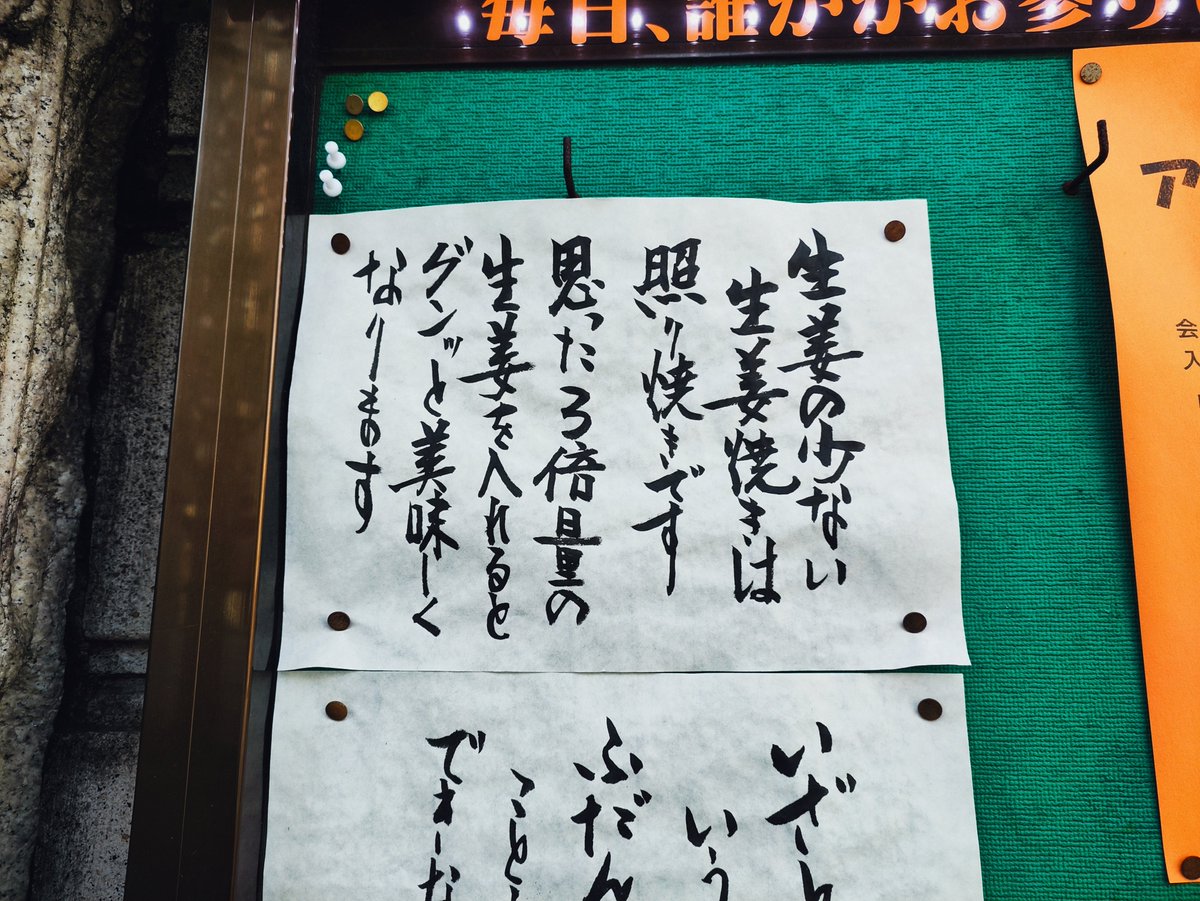 毎日、誰かがお参り
生姜の少ない
生姜焼きは
照り焼きです
思った3倍量の
生姜を入れると
グンッと美味しく
なります
いざと
いう
ふだん
こと
でき
ア
会
入